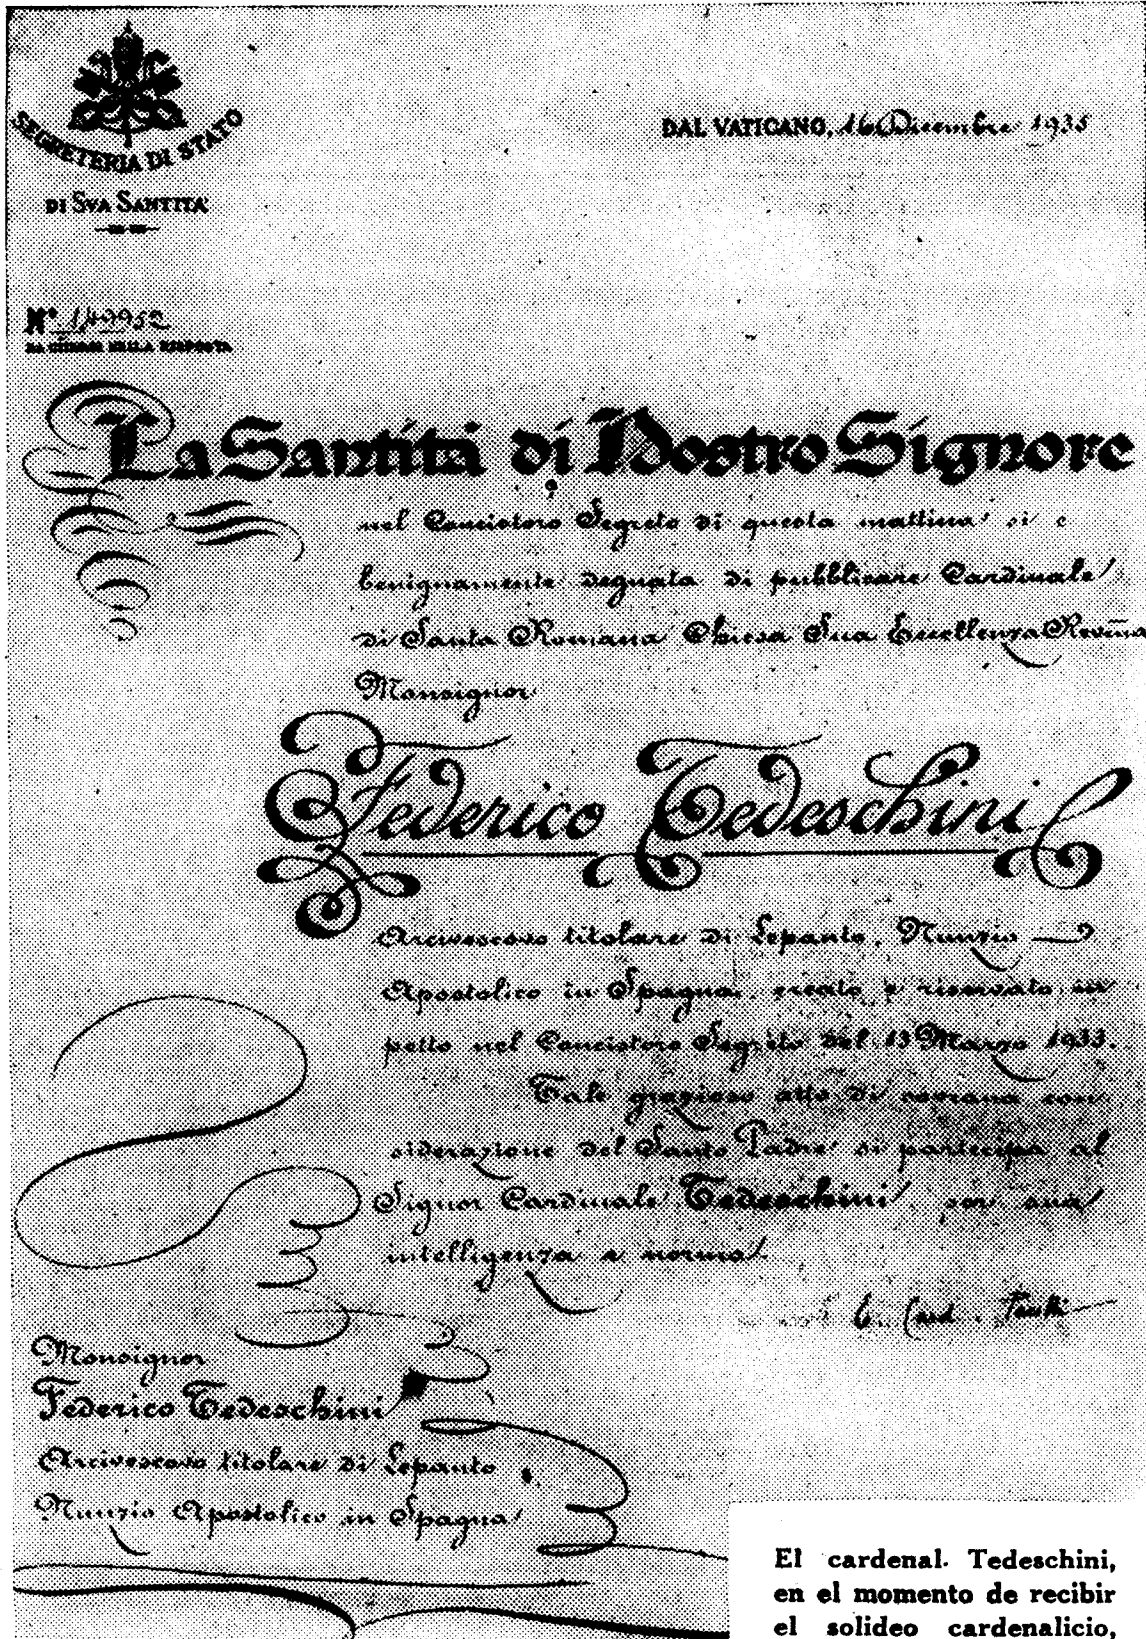 SEGRETERIA DI STATO
DI SVA SANTITA'
DAL VATICANO, 16 Dicembre 1935
Nº 149952
DA CITARSI NELLA RISPOSTA
La Santità di Nostro Signore
nel Concistoro Segreto di questa mattina si è
benignamente degnata di pubblicare Cardinale
di Santa Romana Chiesa Sua Eccellenza Rev̅m̅a
Monsignor
Federico Tedeschini
Arcivescovo titolare di Lepanto, Nunzio
Apostolico in Spagna, creato e riservato in
petto nel Concistoro Segreto del 13 Marzo 1933.
Tale grazioso atto di sovrana con
siderazione del Santo Padre si partecipa al
Signor Cardinale Tedeschini per sua
intelligenza e norma.
E. Card.
Monsignor
Federico Tedeschini
Arcivescovo titolare di Lepanto
Nunzio Apostolico in Spagna
El cardenal Tedeschini,
en el momento de recibir
el solideo cardenalicio,